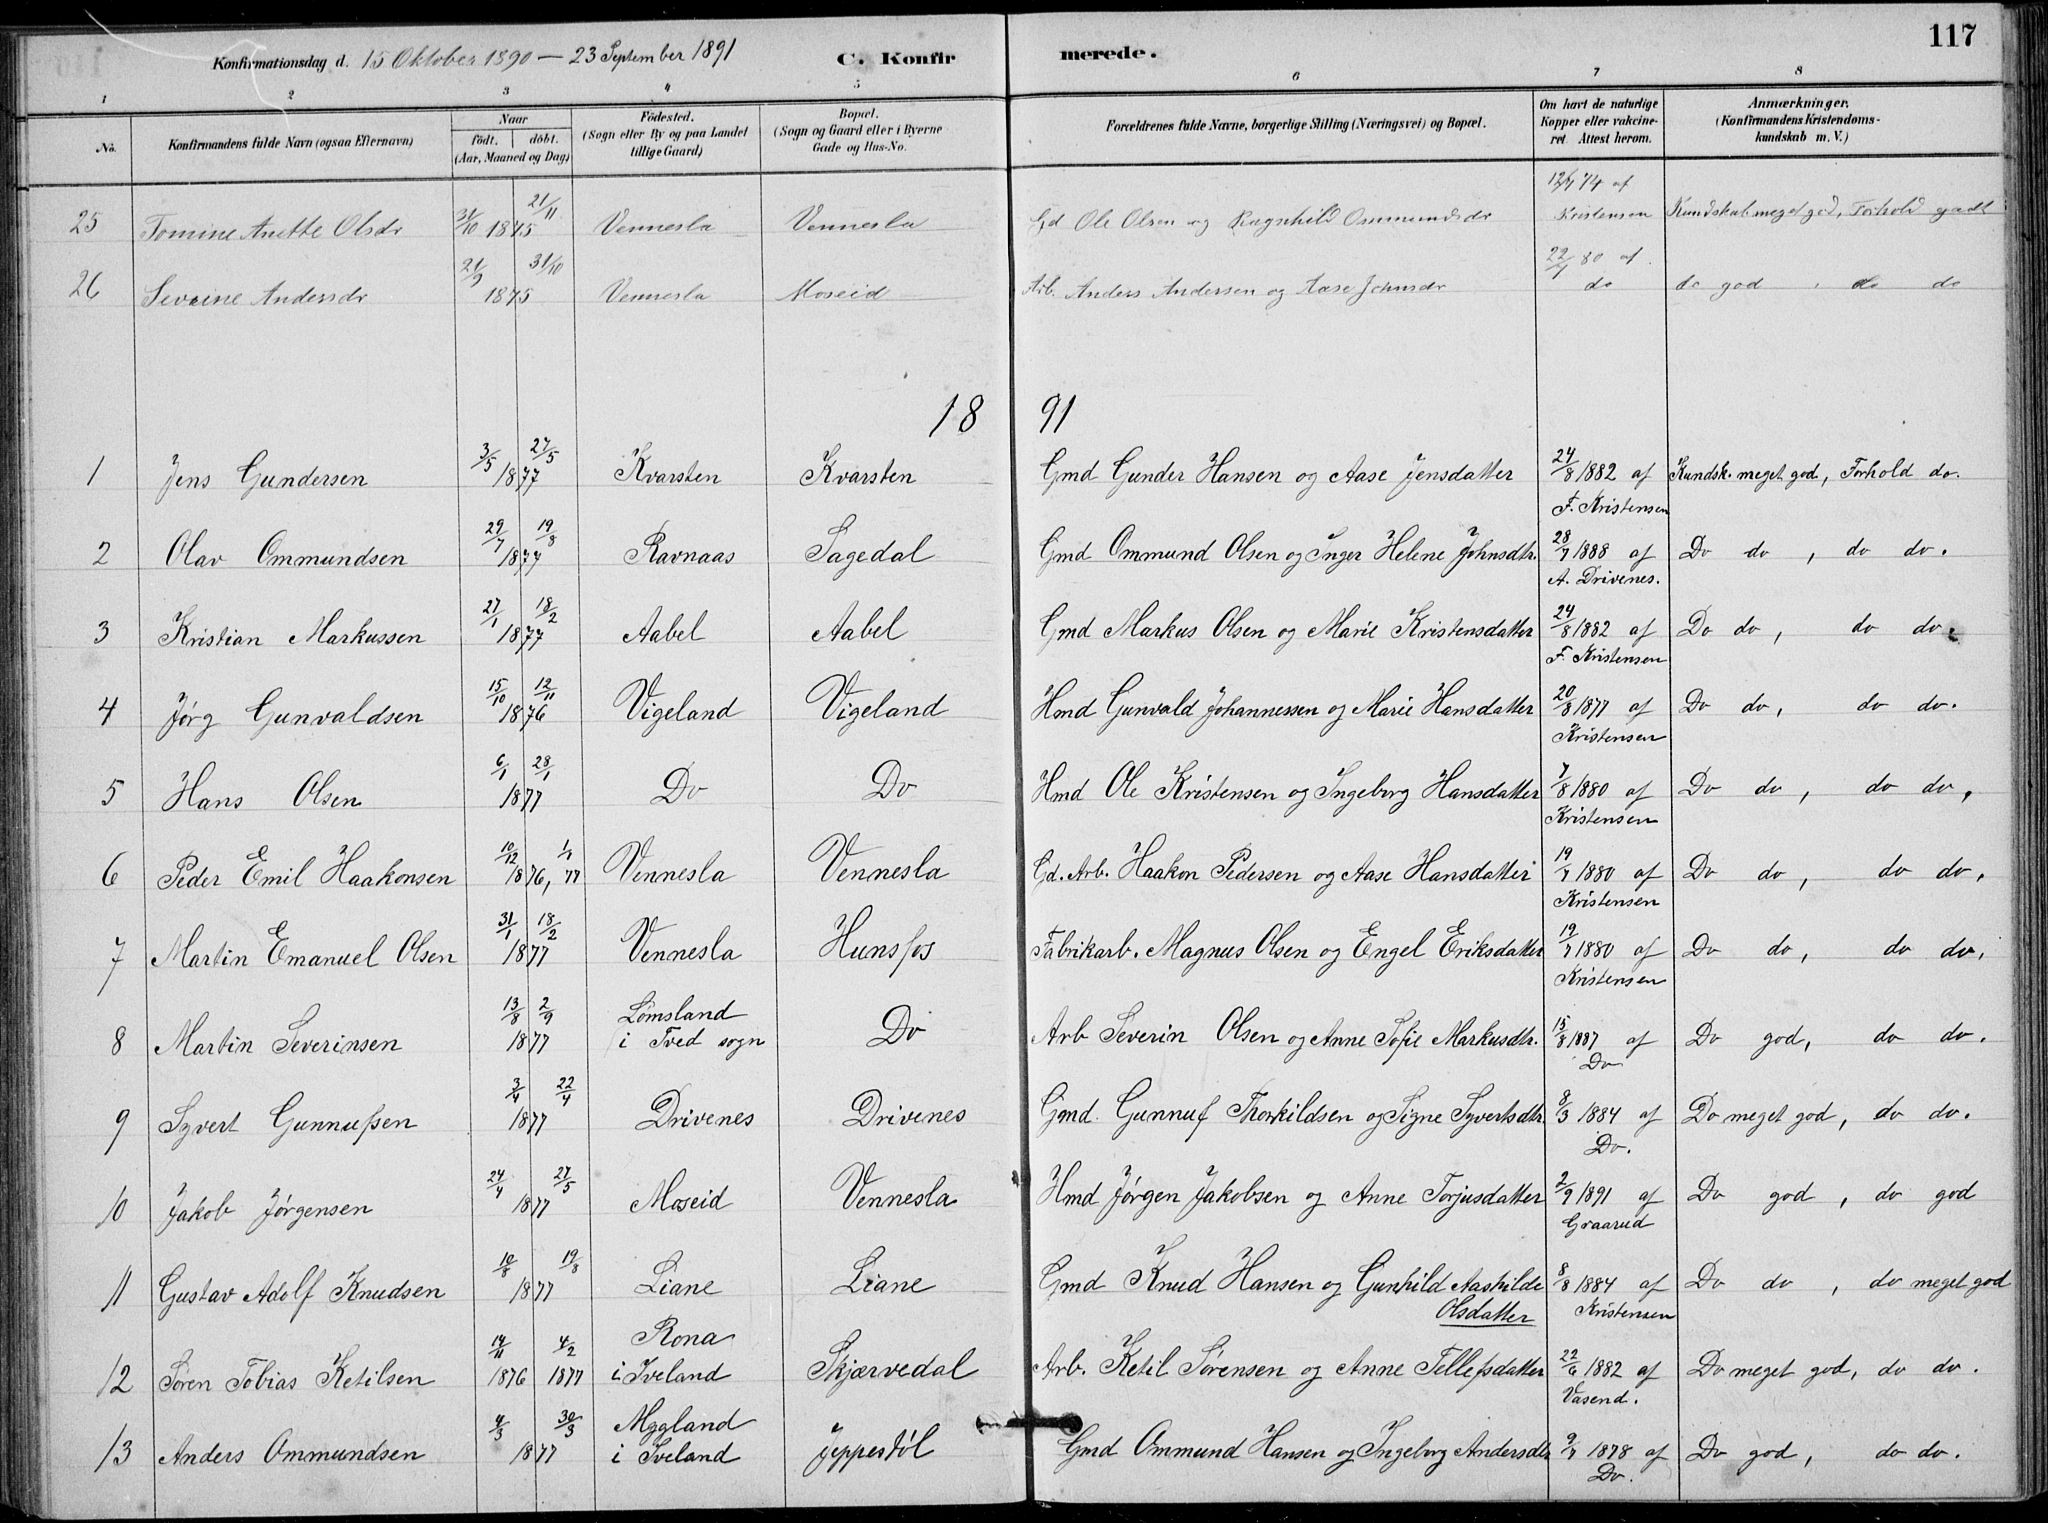 117
Konfirmationsdag d. 15 Oktober 1890 — 23 September 1891 C. Konfir merede.
1 2 3 4 5 6 7 8
No. Konfirmandens fulde Navn (ogsaa Efternavn) Naar födt. döbt. (Aar, Maaned og Dag) Födested. (Sogn eller By og paa Landet tillige Gaard) Bopæl. (Sogn og Gaard eller i Byerne Gade og Hus-No. Forældrenes fulde Navne, borgerlige Stilling (Næringsvei) og Bopæl. Om havt de naturlige Kopper eller vakcineret. Attest herom. Anmærkninger. (Konfirmandens Kristendomskundskab m. V.)
25 Tomine Anette Olsdr 31/10 21/11 1875 Vennesla Vennesla Gd Ole Olsen og Ragnhild Ommundsdr 74 af Kristensen Kundskab meget god, Forhold godt
26 Severine Andersdr 21/9 31/10 1875 Vennesla Moseid Arb. Anders Andersen og Aase Johnsdr 22/7 80 af do do god, do do
18 91
1 Jens Gundersen 3/5 27/5 1877 Kvarsten Kvarsten Gmd Gunder Hansen og Aase Jensdatter 24/8 1882 af F. Kristensen Kundsk. meget god, Forhold do.
2 Olav Ommundsen 29/7 19/8 1877 Ravnaas Sagedal Gmd Ommund Olsen og Inger Helene Johnsdtr. 28/7 1888 af A. Drivenes. Do do, do do.
3 Kristian Markussen 27/1 18/2 1877 Aabel Aabel Gmd Markus Olsen og Marie Kristensdatter 24/8 1882 af F. Kristensen Do do, do do.
4 Jørg Gunvaldsen 15/10 12/11 1876 Vigeland Vigeland Hmd Gunvald Johannessen og Marie Hansdatter 20/8 1877 af Kristensen Do do, do do.
5 Hans Olsen 6/1 28/1 1877 Do Do Hmd Ole Kristensen og Ingeborg Hansdatter 7/8 1880 af Kristensen Do do, do do,
6 Peder Emil Haakonsen 10/12 1/1 1876, 77 Vennesla Vennesla Gd. Arb. Haakon Pedersen og Aase Hansdatter 19/7 1880 af Kristensen Do do, do do,
7 Martin Emanuel Olsen 31/1 18/2 1877 Vennesla Hunsfos Fabrikarb. Magnus Olsen og Engel Eriksdatter 19/7 1880 af Kristensen Do do, do do,
8 Martin Severinsen 13/8 2/9 1877 Lømsland i Tved sogn Do Arb Severin Olsen og Anne Sofie Markusdtr. 15/8 1887 af Do Do god, do do.
9 Syvert Gunnufsen 3/4 22/4 1877 Drivenes Drivenes Gmd. Gunnuf Thorkildsen og Signe Syvertsdtr. 8/3 1884 af Do. Do meget god, do do.
10 Jakob Jørgensen 24/4 27/5 1877 Moseid Vennesla Hmd Jørgen Jakobsen og Anne Torjusdatter 2/9 1891 af Graarud Do god, do god
11 Gustav Adolf Knudsen 10/8 19/8 1877 Liane Liane Gmd Knud Hansen og Gunhild Aashilde Olsdatter 8/8 1884 af Kristensen Do do, do meget god
12 Søren Tobias Ketilsen 14/11 4/2 1876 1877 Rona i Iveland Skjærvedal Arb. Ketil Sørensen og Anne Tellefsdatter 22/6 1882 af Vasend. Do meget god, do do.
13 Anders Ommundsen 4/3 30/3 1877 Mygland i Iveland Jeppestøl Gmd Ommund Hansen og Ingeborg Andersdtr 9/7 1878 af Do. Do god, do do.